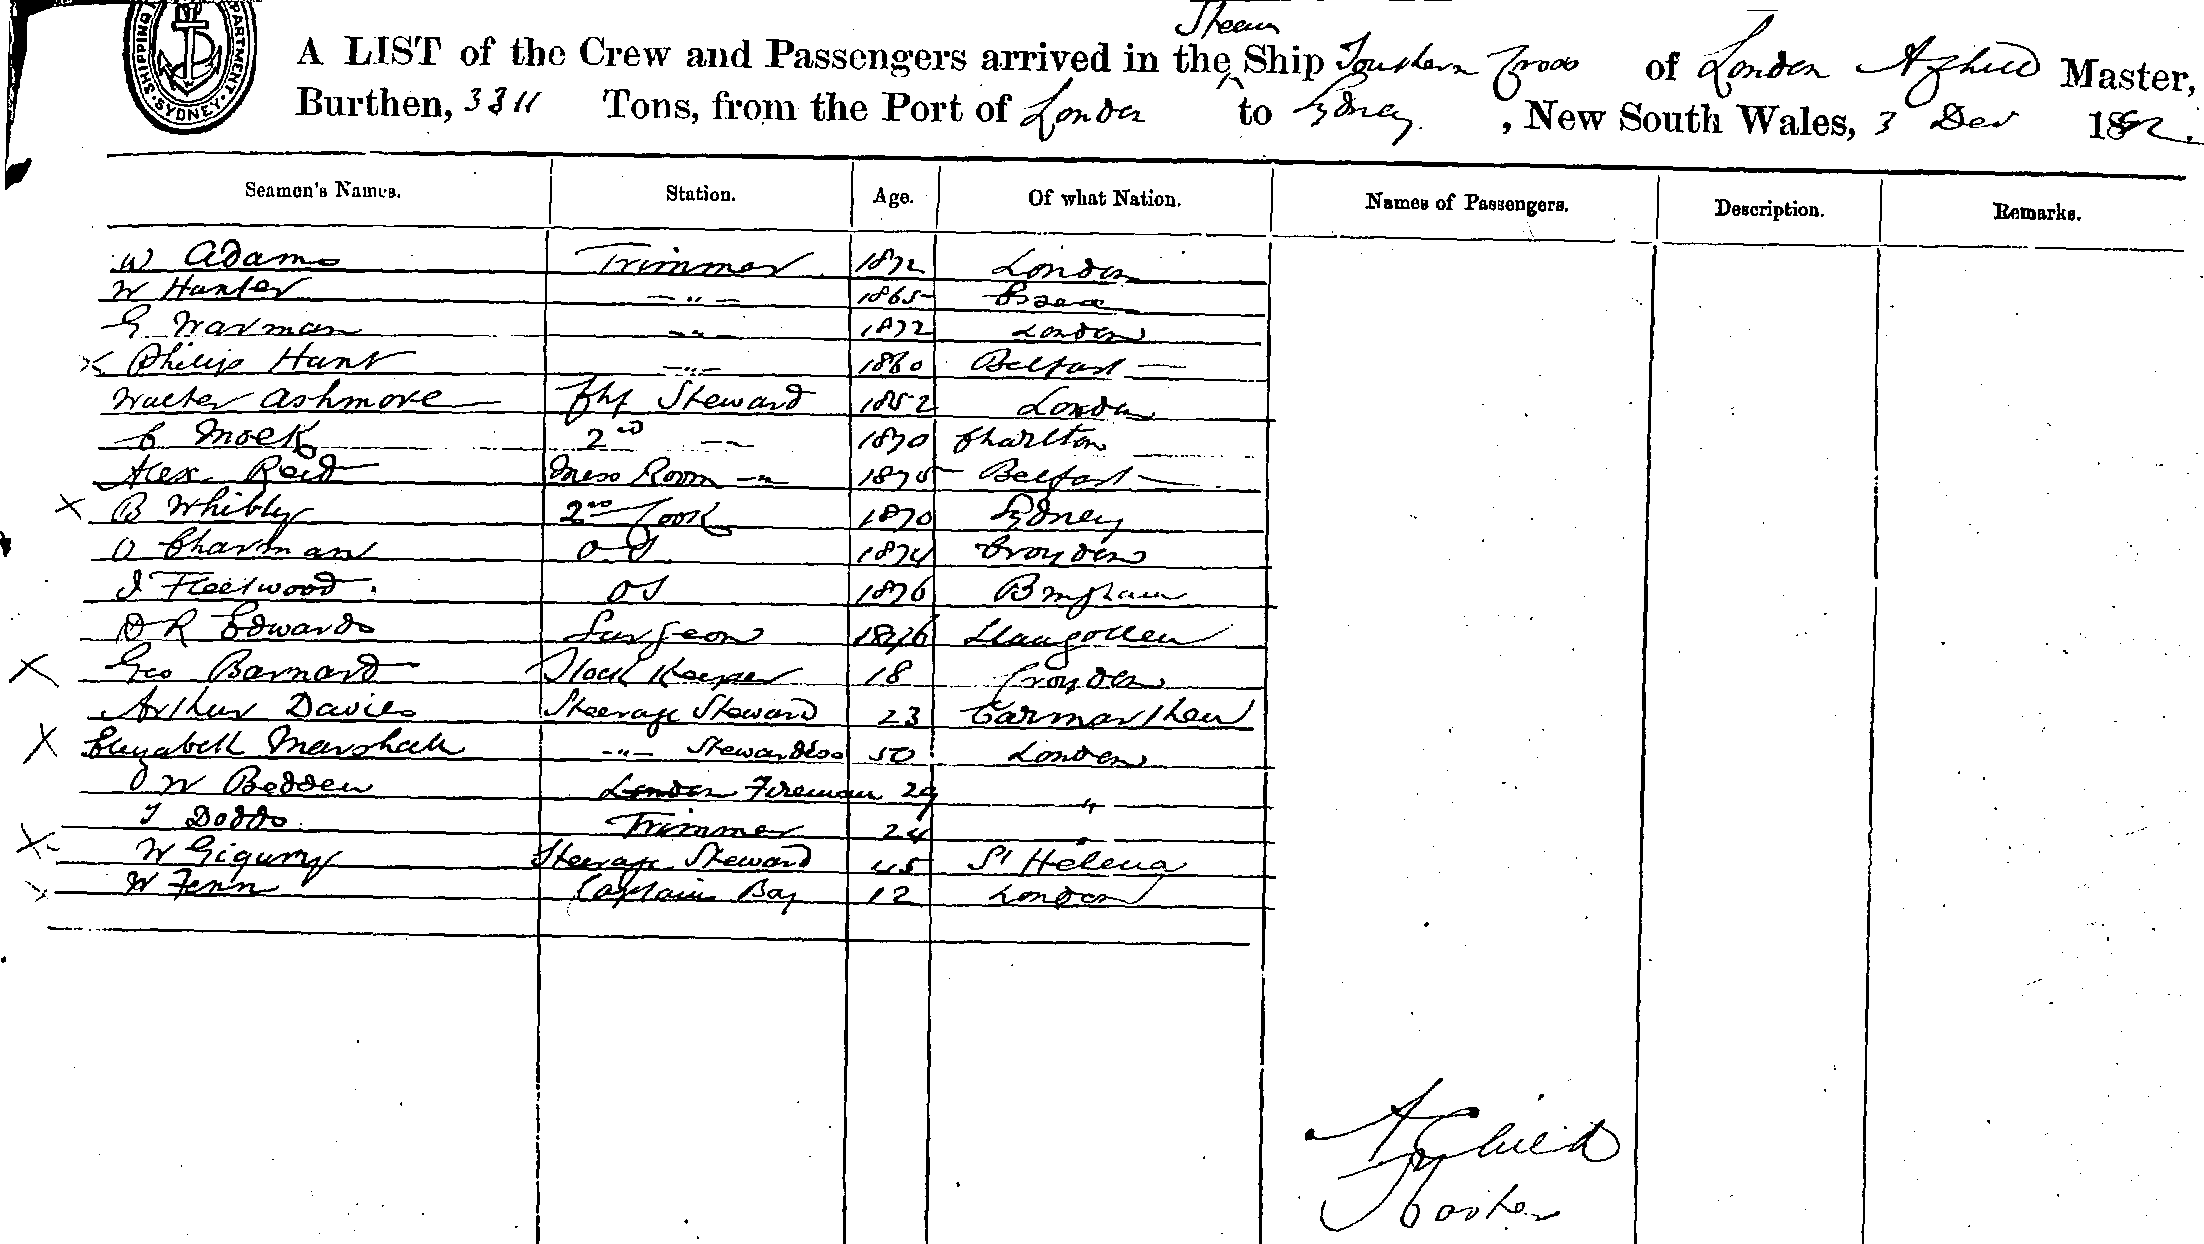 SHIPPING DEPARTMENT. SYDNEY.
Steam
A LIST of the Crew and Passengers arrived in the ^ Ship Southern Cross of London A Child Master,
Burthen, 3311 Tons, from the Port of London to Sydney , New South Wales, 3 Dec 1892.
Seamen's Names. Station. Age. Of what Nation. Names of Passengers. Description. Remarks.
W Adams Trimmer 1872 London
W Hunter -"- 1865
G Warman -"- 1872 London
x Philip Hunt -"- 1860 Belfast
Walter Ashmore Chf Steward 1852 London
C Mock 2nd -"- 1870 Charlton
Alex. Reid Mess Room -"- 1875 Belfast
x B Whibly 2nd Cook 1870 Sydney
O Charman OS 1874 Croydon
J Fleetwood. OS 1876 Bmgham
D R Edwards Surgeon Llangollen
x Geo Barnard Stock Keeper 18 Croydon
Arthur Davies Steerage Steward 23 Carmarthen
x Elizabeth Marshall -"- Stewardess 50 London
W Bedden London Fireman 29 "
T Dodds Trimmer 24 "
x W Steerage Steward 45 St Helena
x W Fenn Captains Boy 12 London
A Child
Master